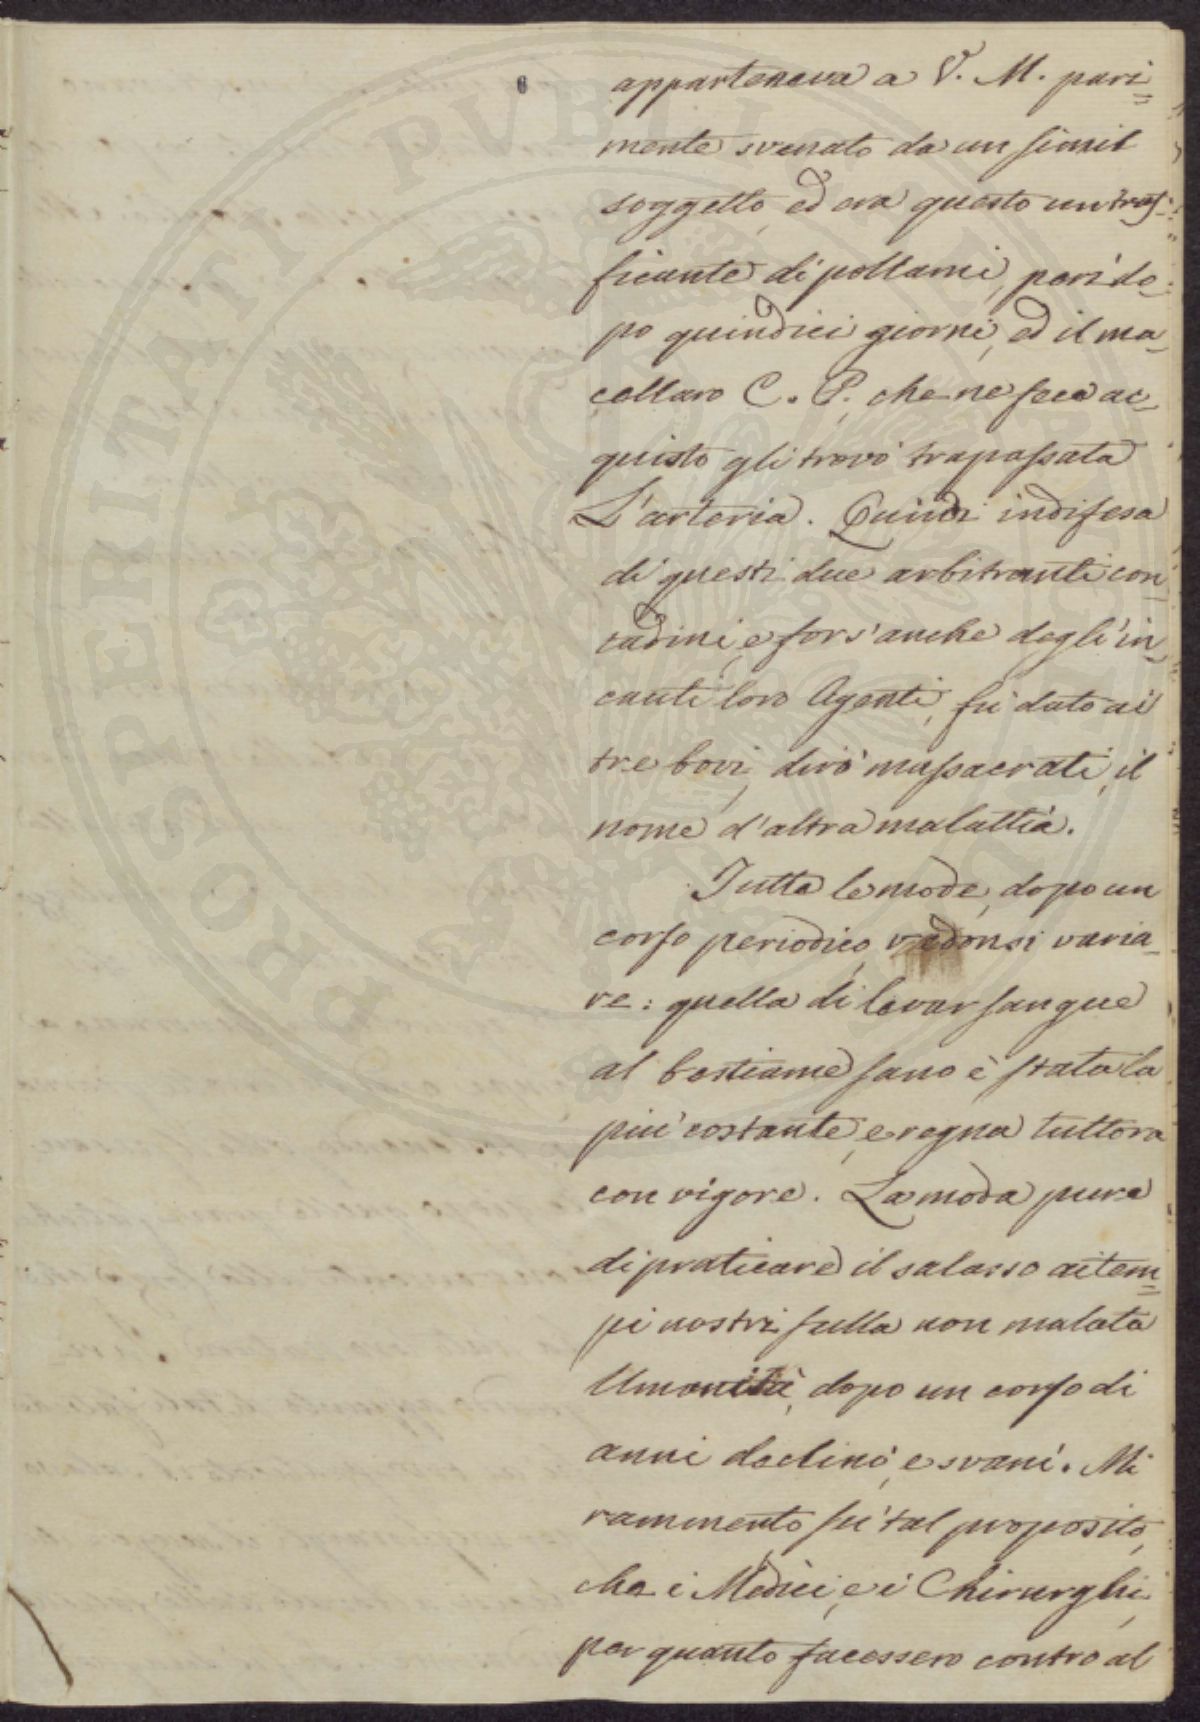 apparteneva a V. M. pari=
mente svenato da un simil
soggetto, ed era questo un traf=
ficante di pollami, perì do=
po quindici giorni, ed il ma=
cellaro C. P. che ne fece ac=
quisto gli trovò trapassata
L'arteria. Quindi indifesa
di questi due arbitranti con=
tadini, e fors'anche degl'in=
cauti loro Agenti, fù dato ai
tre bovi, dirò massacrati, il
nome d'altra malattia.
Tutte le mode, dopo un
corso periodico, vedonsi varia=
re: quella di levar sangue
al bestiame sano è stata la
più costante, e regna tuttora
con vigore. La moda pure
di praticare il salasso ai tem=
pi nostri sulla non malata
Umanità, dopo un corso di
anni declinò, e svanì. Mi
rammento sù tal proposito,
che i Medici, e i Chirurghi,
per quanto facessero contro al
PROSPERITATI PVBLICAE